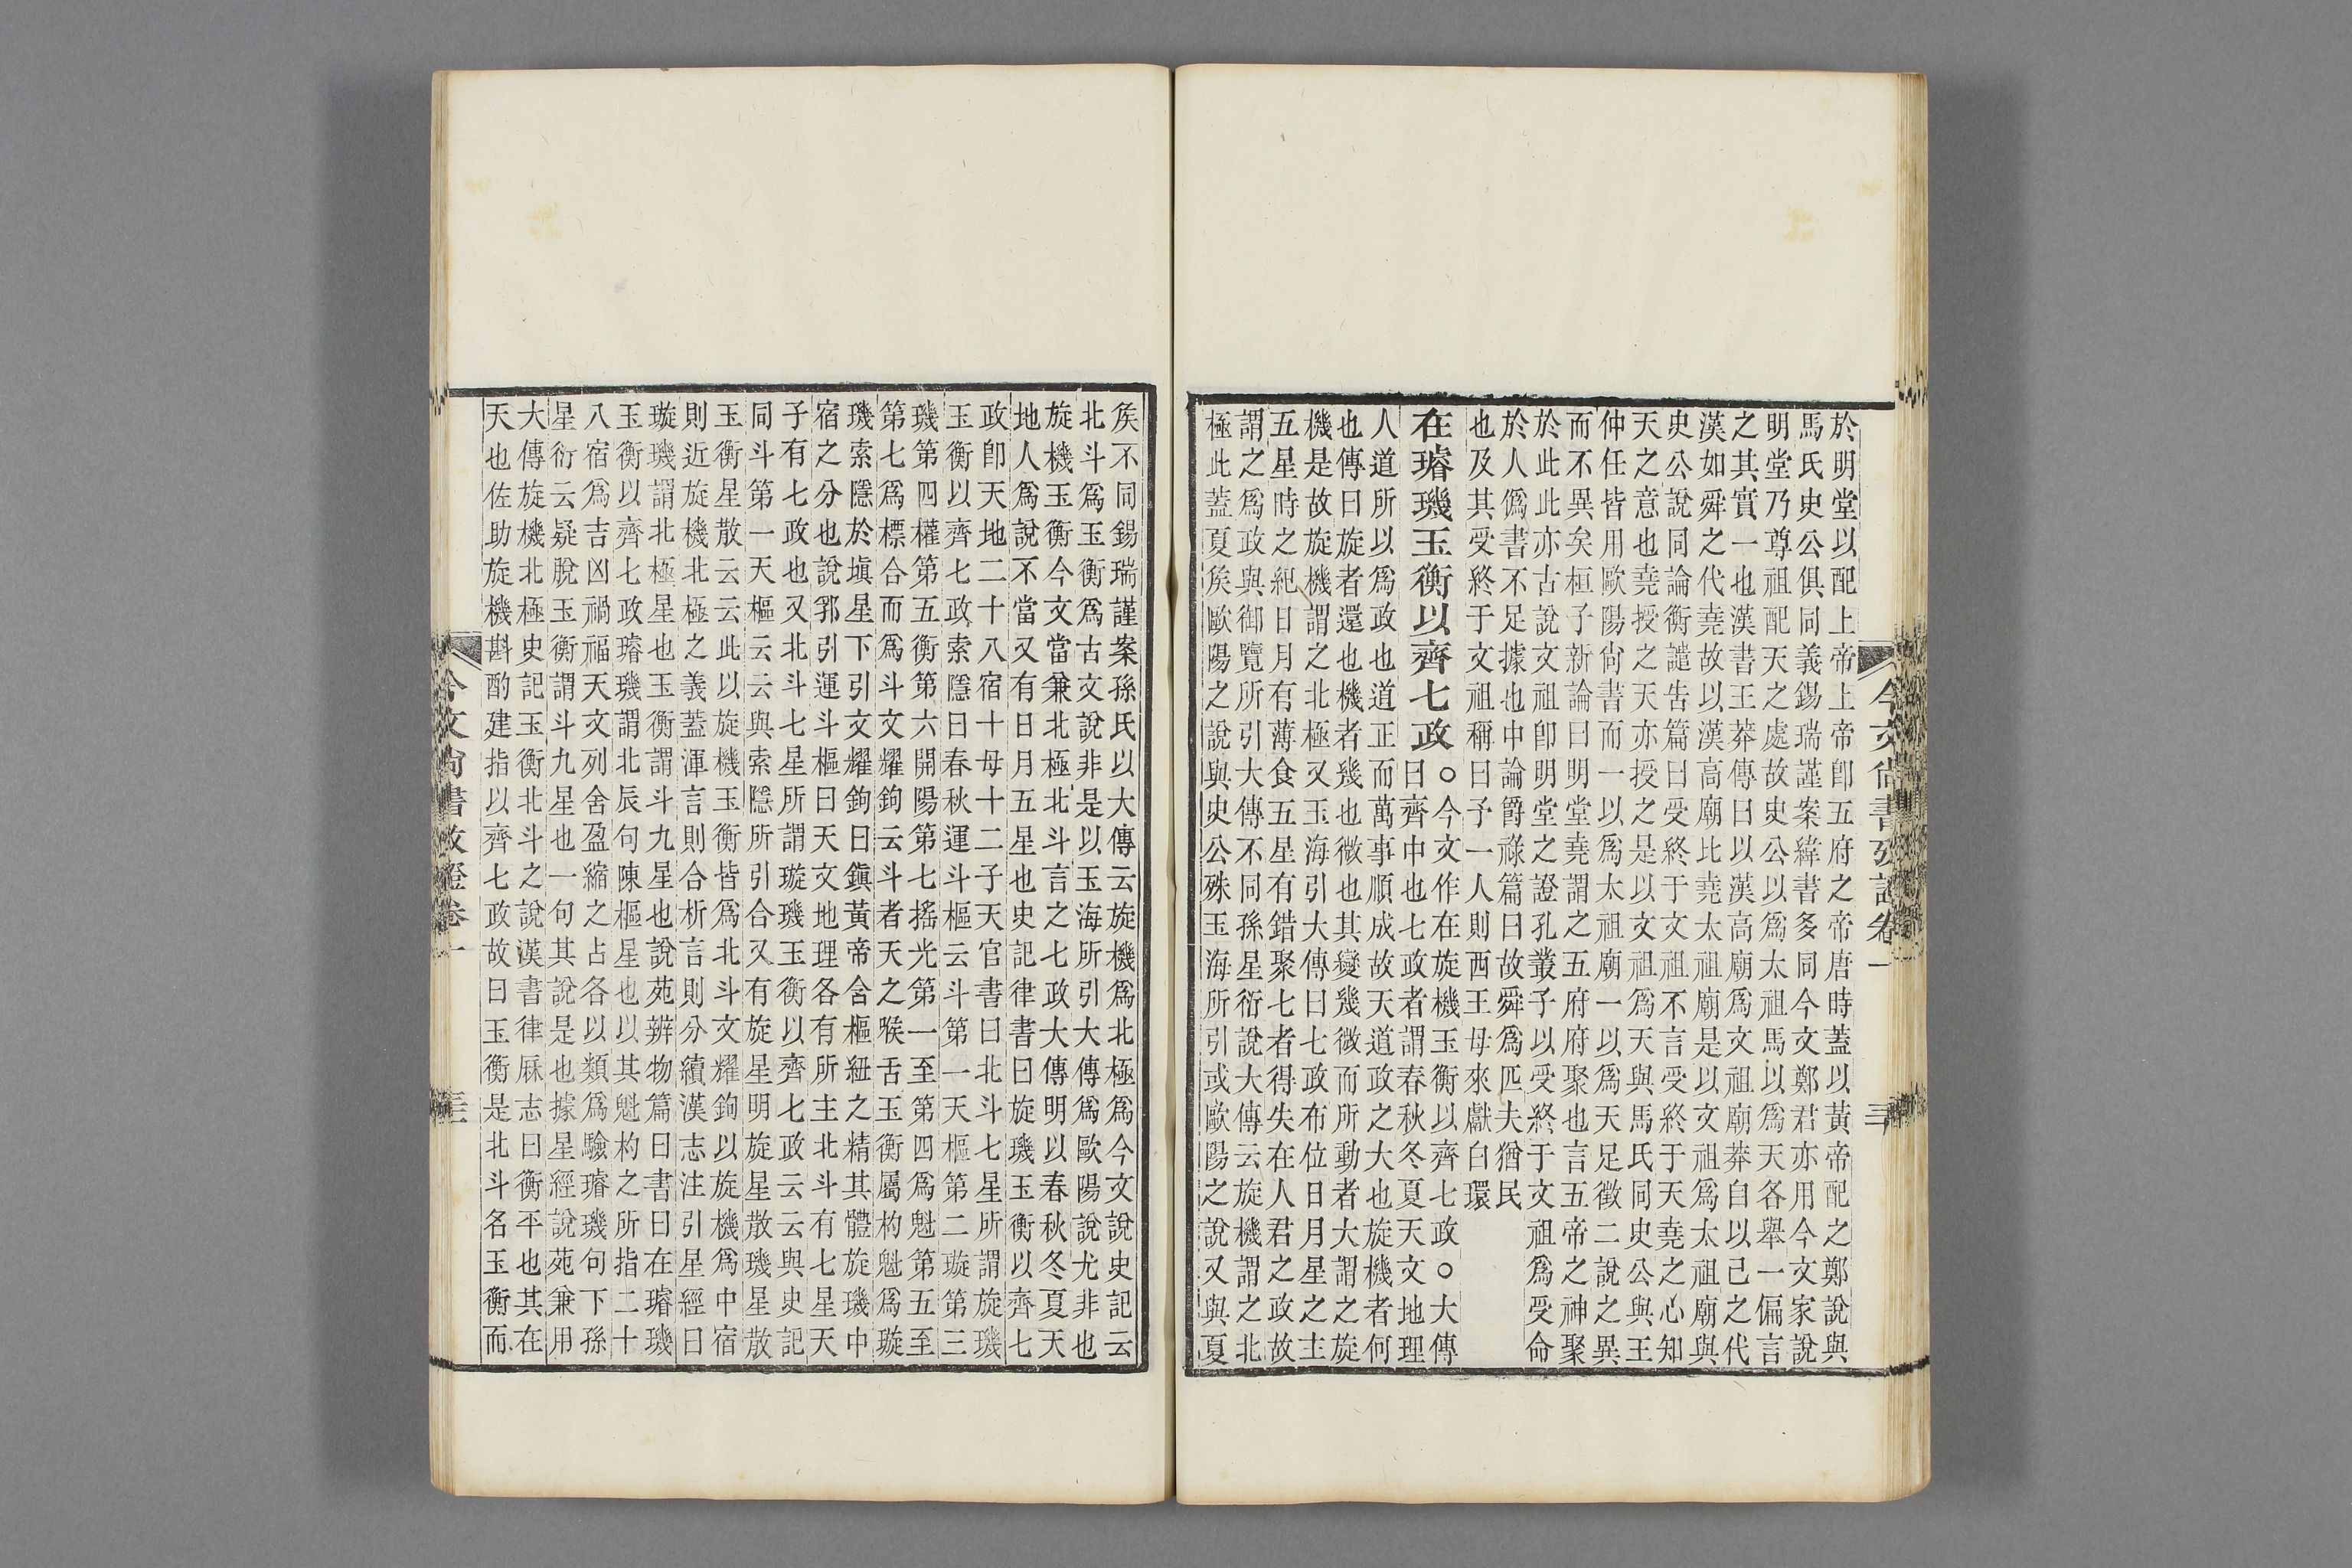 今文尙書攷證卷一
於明堂以配上帝上帝卽五府之帝唐時蓋以黃帝配之鄭說與
馬氏史公俱同義錫瑞謹案緯書多同今文鄭君亦用今文家說
明堂乃尊祖配天之處故史公以爲太祖馬以爲天各舉一偏言
之其實一也漢書王莽傳曰以漢高廟爲文祖廟莽自以己之代
漢如舜之代堯故以漢高廟比堯太祖廟是以文祖爲太祖廟與
史公說同論衡譴告篇曰受終于文祖不言受終于天堯之心知
天之意也堯授之天亦授之是以文祖爲天與馬氏同史公與王
仲任皆用歐陽尙書而一以爲太祖廟一以爲天足徵二說之異
而不異矣桓子新論曰明堂堯謂之五府府聚也言五帝之神聚
於此此亦古說文祖卽明堂之證孔叢子以受終于文祖爲受命
於人僞書不足據也中論爵祿篇曰故舜爲匹夫猶民
也及其受終于文祖稱曰予一人則西王母來獻白環
在璿璣玉衡以齊七政
○今文作在旋機玉衡以齊七政○大傳
曰齊中也七政者謂春秋冬夏天文地理
人道所以爲政也道正而萬事順成故天道政之大也旋機者何
也傳曰旋者還也機者幾也微也其變幾微而所動者大謂之旋
機是故旋機謂之北極又玉海引大傳曰七政布位日月星之主
五星時之紀日月有薄食五星有錯聚七者得失在人君之政故
謂之爲政與御覽所引大傳不同孫星衍說大傳云旋機謂之北
極此蓋夏矦歐陽之說與史公殊玉海所引或歐陽之說又與夏
矦不同錫瑞謹案孫氏以大傳云旋機爲北極爲今文說史記云
北斗爲玉衡爲古文說非是以玉海所引大傳爲歐陽說尤非也
旋機玉衡今文當兼北極北斗言之七政大傳明以春秋冬夏天
地人爲說不當又有日月五星也史記律書曰旋璣玉衡以齊七
政卽天地二十八宿十母十二子天官書曰北斗七星所謂旋璣
玉衡以齊七政索隱曰春秋運斗樞云斗第一天樞第二璇第三
璣第四權第五衡第六開陽第七搖光第一至第四爲魁第五至
第七爲標合而爲斗文耀鉤云斗者天之喉舌玉衡屬杓魁爲璇
璣索隱於塡星下引文耀鉤曰鎭黃帝含樞紐之精其體旋璣中
宿之分也說郛引運斗樞曰天文地理各有所主北斗有七星天
子有七政也又北斗七星所謂璇璣玉衡以齊七政云云與史記
同斗第一天樞云云與索隱所引合又有旋星明旋星散璣星散
玉衡星散云云此以旋機玉衡皆爲北斗文耀鉤以旋機爲中宿
則近旋機北極之義蓋渾言則合析言則分續漢志注引星經曰
璇璣謂北極星也玉衡謂斗九星也說苑辨物篇曰書曰在璿璣
玉衡以齊七政璿璣謂北辰句陳樞星也以其魁杓之所指二十
八宿爲吉凶禍福天文列舍盈縮之占各以類爲驗璿璣句下孫
星衍云疑脫玉衡謂斗九星也一句其說是也據星經說苑兼用
大傳旋機北極史記玉衡北斗之說漢書律厤志曰衡平也其在
天也佐助旋機斟酌建指以齊七政故曰玉衡是北斗名玉衡而
今文尙書攷證卷一